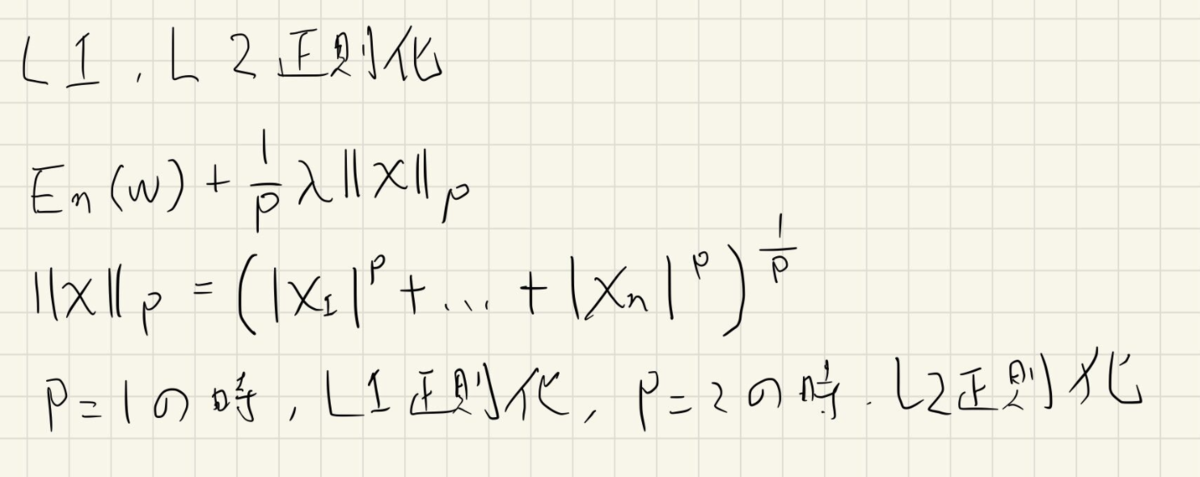 L1, L2正則化
En(w) + 1/p λ||x||p
||x||p = (|x1|^p + ... + |xn|^p)^(1/p)
p=1の時, L1正則化, p=2の時. L2正則化